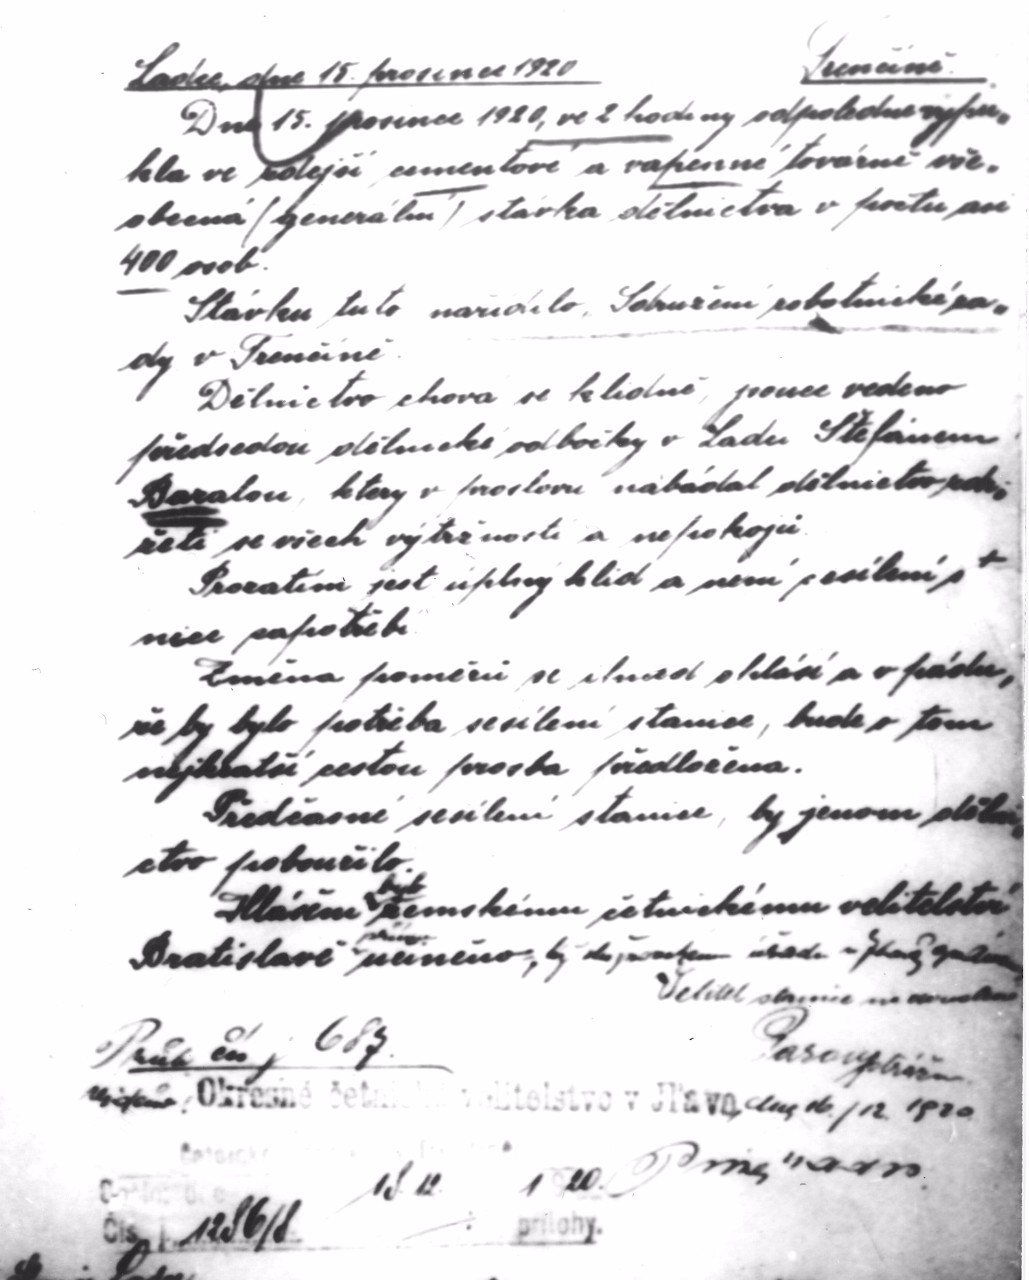 Ladce, dne 15. prosince 1920 Trenčíně.
Dne 15. prosince 1920, ve 2 hodiny odpoledne vypu-
kla ve zdejší cementové a vapenné továrně vše-
obecná (generální) stávka dělnictva v počtu asi
400 osob.
Stávku tuto nařídilo, Sdružení robotnické ra-
dy v Trenčíně.
Dělnictvo chová se klidně, jsouce vedeno
předsedou dělnické odbočky v Ladci Štefánem
Baralou, který v proslovu nabádal dělnictvo zdr-
žeti se všech výtržností a nepokojů.
Prozatím jest úplný klid a není sesílení st
nice zapotřebí.
Změna poměrů se ihned ohlásí a v pádu,
že by bylo potřeba sesílení stanice, bude o tom
nejkratší cestou prosba předložena.
Předčasné sesílení stanice, by jenom dělni-
ctvo pobouřilo.
Hlášení bylo zemskému četnickému velitelství
Bratislavě učiněno,
Velitel stanice
Průk čís j 687.
Okresné četnické velitelstvo v Iľave, dne 16./12. 1920.
18 12 1920.
Čís. 1286/8 prílohy.